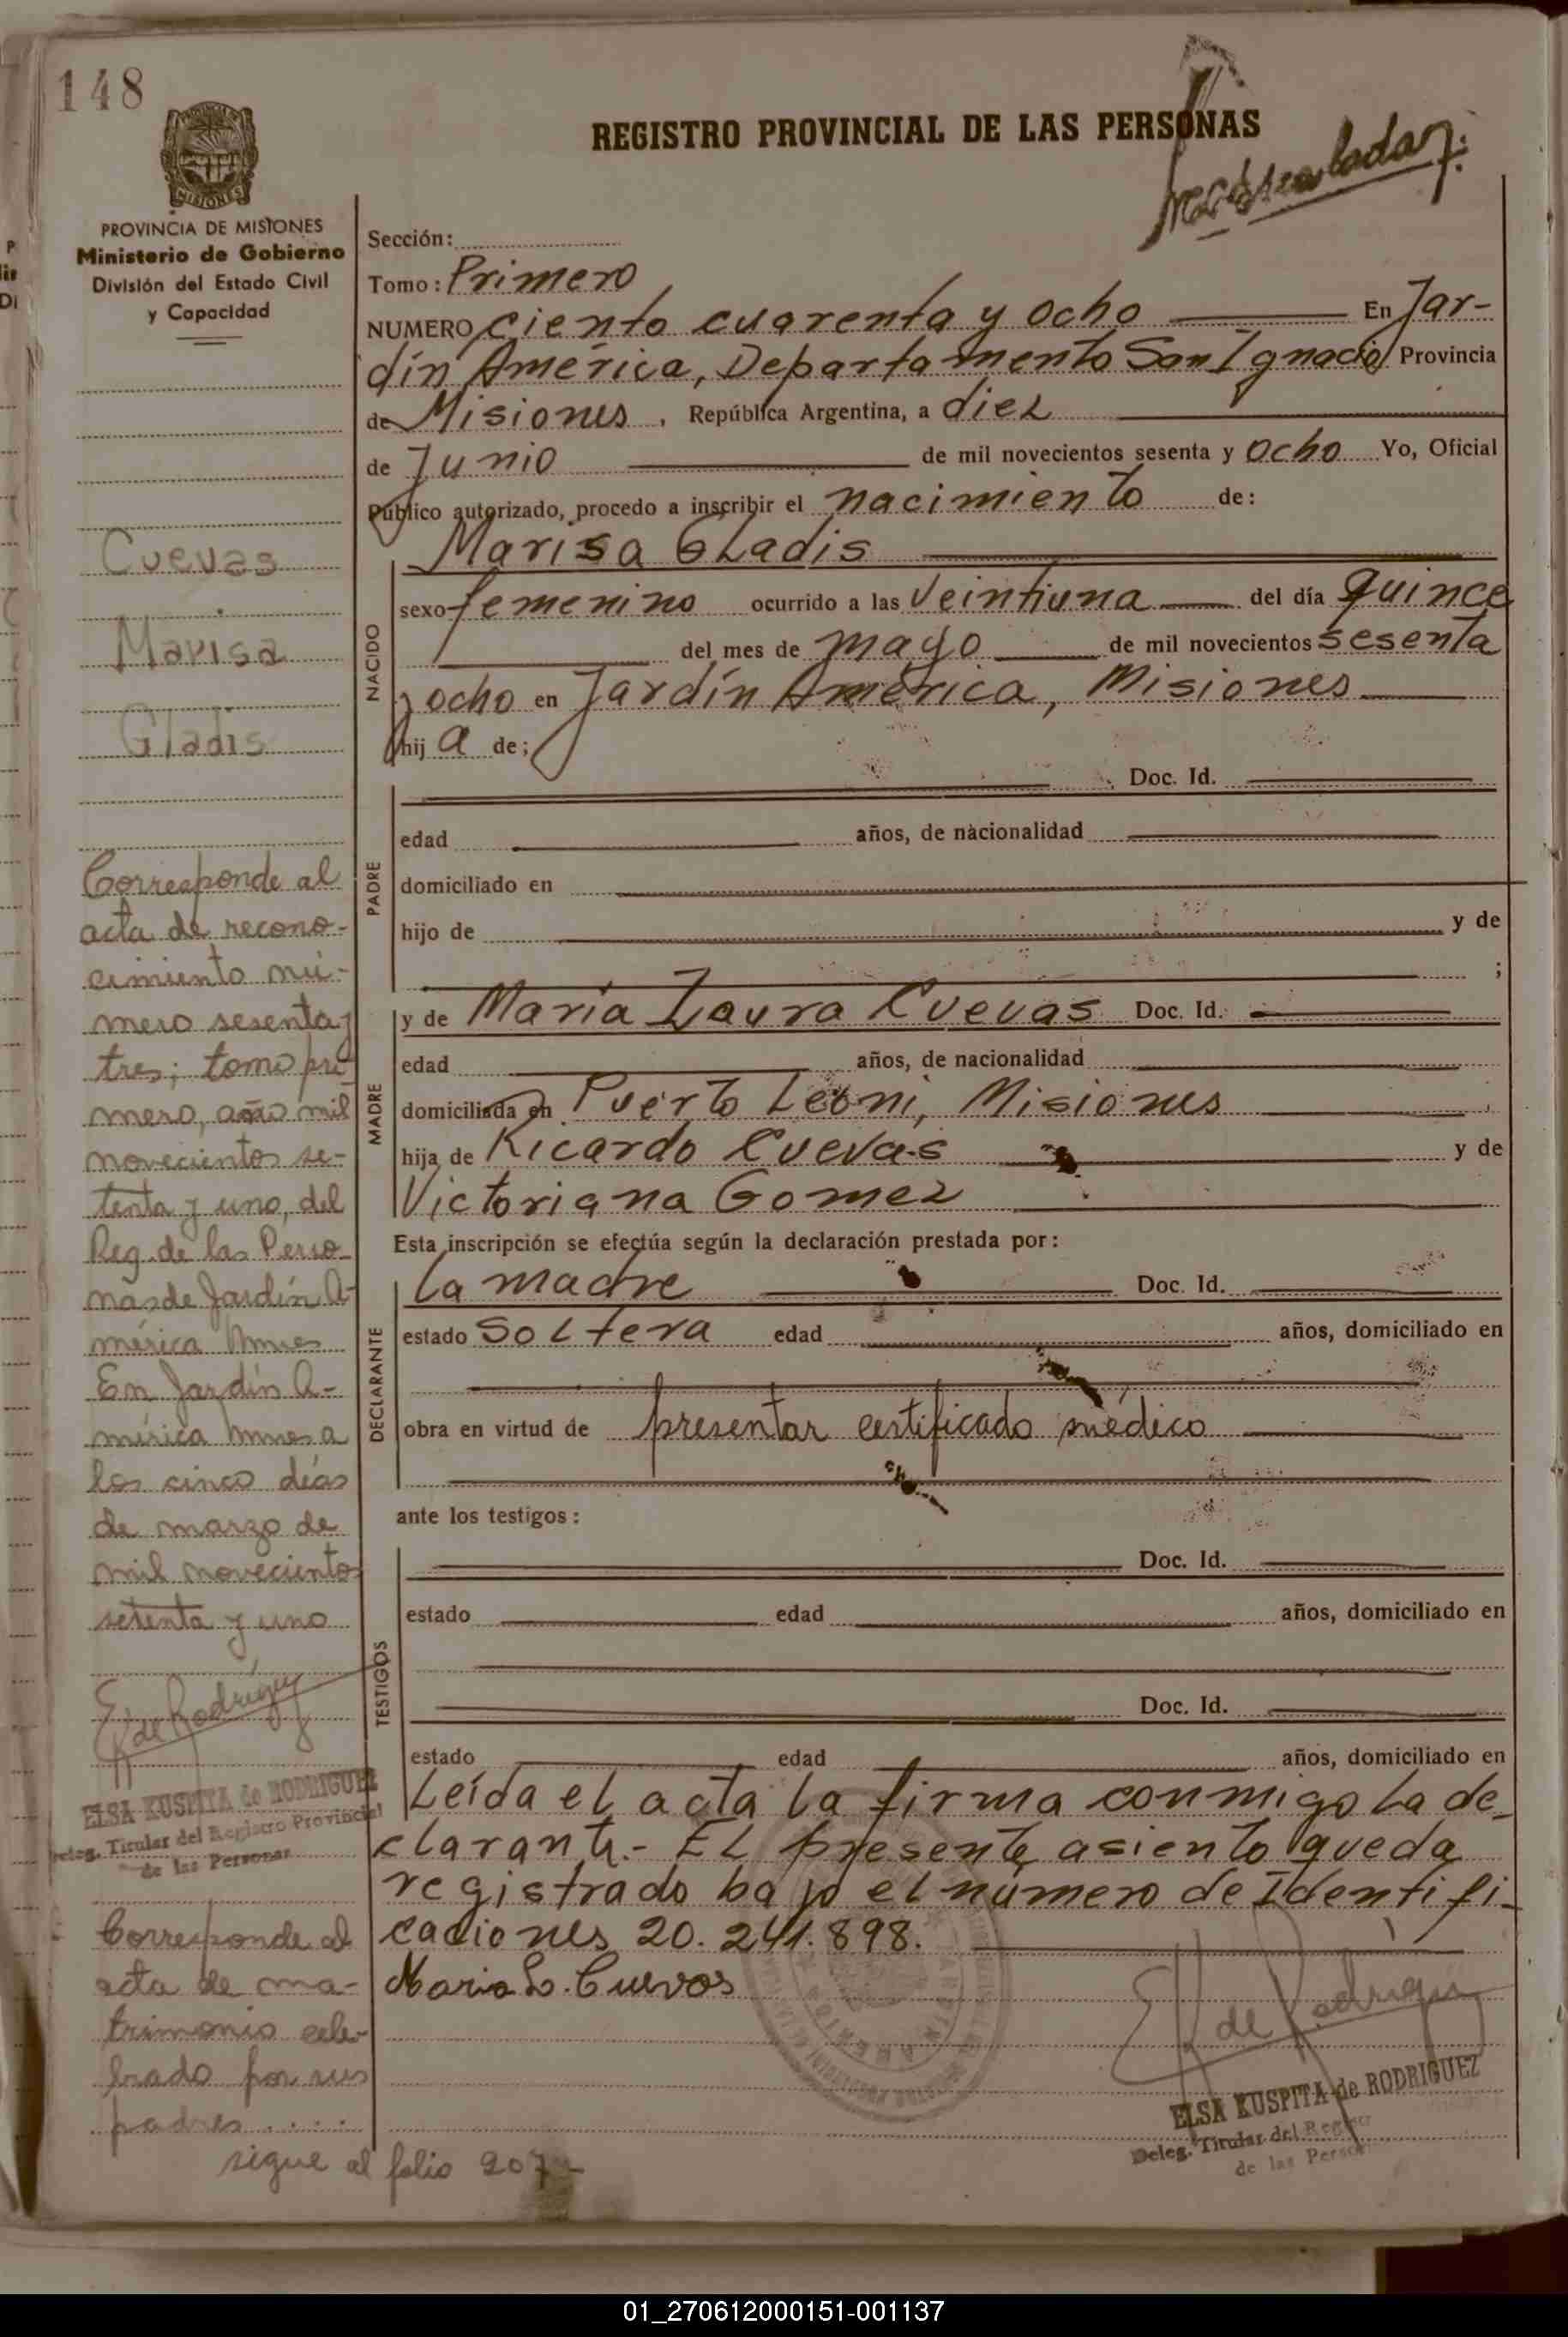 148
REGISTRO PROVINCIAL DE LAS PERSONAS
MISIONES
PROVINCIA DE MISIONES
Ministerio de Gobierno
División del Estado Civil
y Capacidad
Cuevas
Marisa
Gladis
Corresponde al
acta de recono-
cimiento nú-
mero sesenta y
tres; tomo pri-
mero, año mil
novecientos se-
tenta y uno, del
Reg. de las Perso-
nas de Jardín A-
mérica Mnes
En Jardín A-
mérica Mnes a
los cinco días
de marzo de
mil novecientos
setenta y uno
E K de Rodriguez
ELSA KUSPITA de RODRIGUEZ
Deleg. Titular del Registro Provincial
de las Personas
Corresponde al
acta de ma-
trimonio cele-
brado por sus
padres.....
sigue al folio 207-
Sección:
Tomo: Primero
NUMERO ciento cuarenta y ocho En Jar-
dín América, Departamento San Ignacio Provincia
de Misiones, República Argentina, a diez
de Junio de mil novecientos sesenta y ocho Yo, Oficial
Público autorizado, procedo a inscribir el nacimiento de:
Marisa Gladis
NACIDO
sexo femenino ocurrido a las veintiuna del día quince
del mes de mayo de mil novecientos sesenta
y ocho en Jardín América, Misiones
hij a de;
PADRE
Doc. Id.
edad años, de nacionalidad
domiciliado en
hijo de y de
;
MADRE
y de María Laura Cuevas Doc. Id.
edad años, de nacionalidad
domiciliada en Puerto Leoni, Misiones
hija de Ricardo Cuevas y de
Victoriana Gomez
Esta inscripción se efectúa según la declaración prestada por:
DECLARANTE
la madre Doc. Id.
estado soltera edad años, domiciliado en
obra en virtud de presentar certificado médico
ante los testigos:
TESTIGOS
Doc. Id.
estado edad años, domiciliado en
Doc. Id.
estado edad años, domiciliado en
Leída el acta la firma conmigo la de-
clarante.- El presente asiento queda
registrado bajo el número de Identifi-
caciones 20.241.898.
Maria L. Cuevas
E K de Rodriguez
ELSA KUSPITA de RODRIGUEZ
Deleg. Titular del Regist
de las Person
01_270612000151-001137